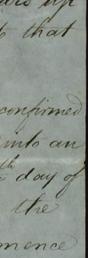 that
confirmed
into an
th
day of
the
mence